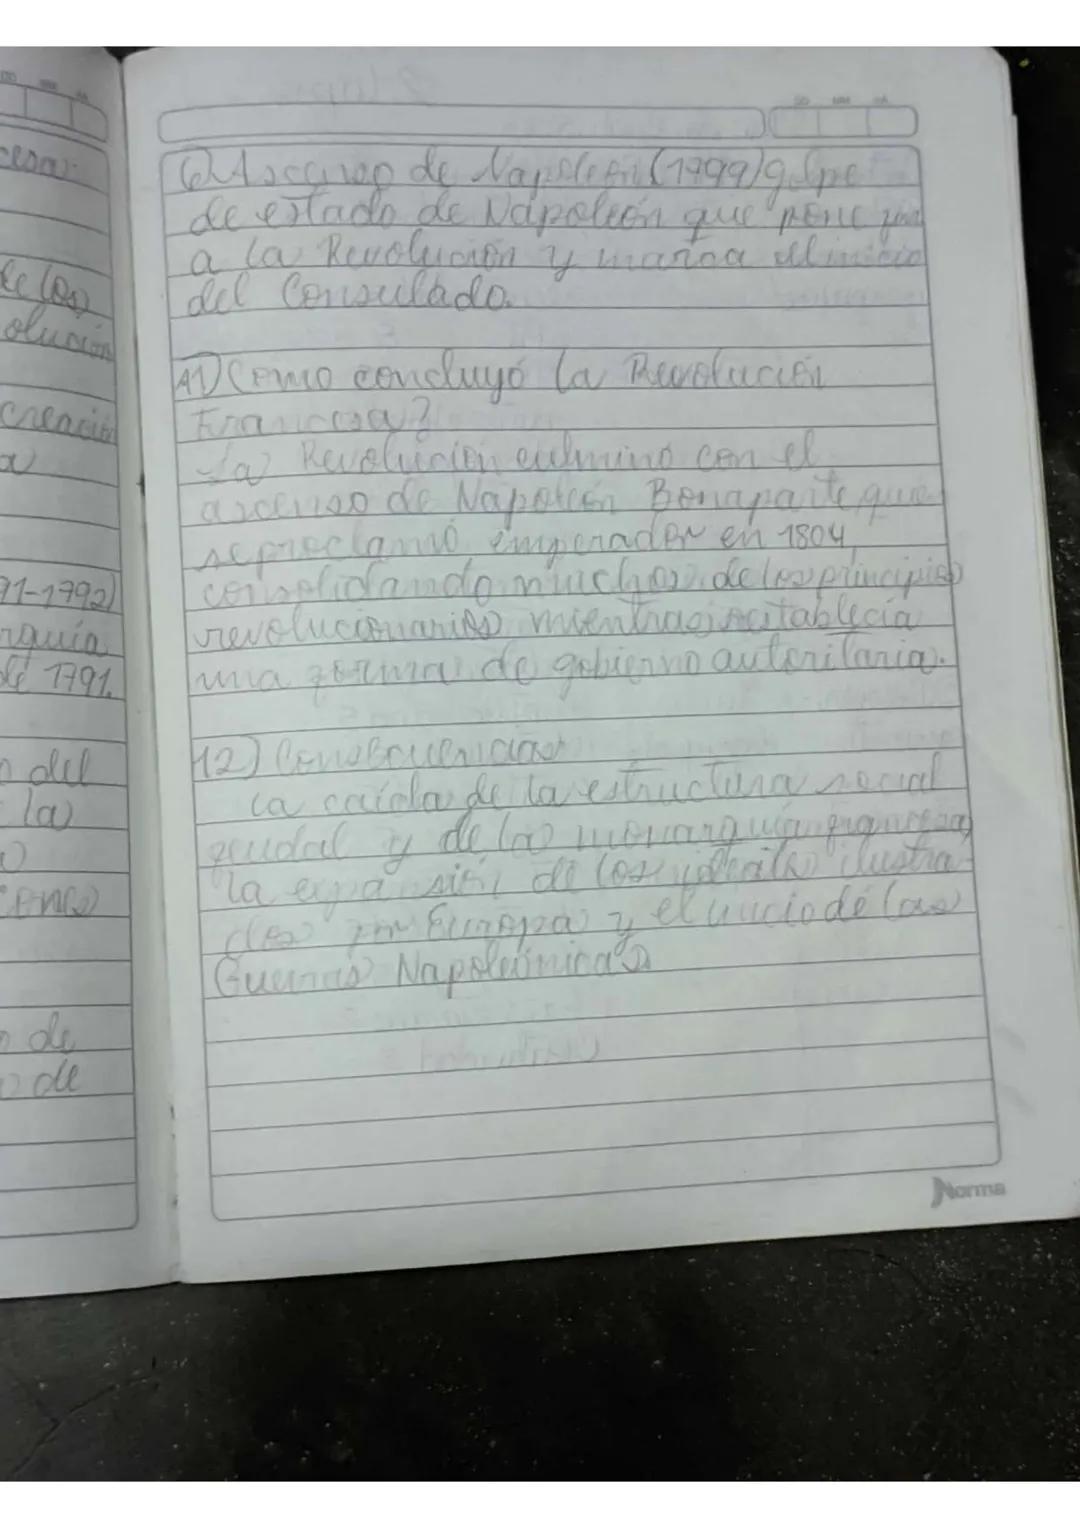 cesa.
de los
olución
creación
a
91-1792)
rquía
de 1791.
o del
la
a
o de
o de
DD MM AA
6) Ascenso de Napoleón (1799) golpe
de estado de Napoleón que pone fin
a la Revolución y marca el inicio
del Consulado.
11) Como concluyó la Revolución
Francesa?
La Revolución culminó con el
ascenso de Napoleón Bonaparte, que
se proclamó emperador en 1804,
consolidando muchos de los principios
revolucionarios mientras establecía
una forma de gobierno autoritaria.
12) Consecuencias
La caída de la estructura social
feudal y de la monarquía francesa,
la expansión de los ideales ilustra-
dos por Europa y el inicio de las
Guerras Napoleónicas
Norma